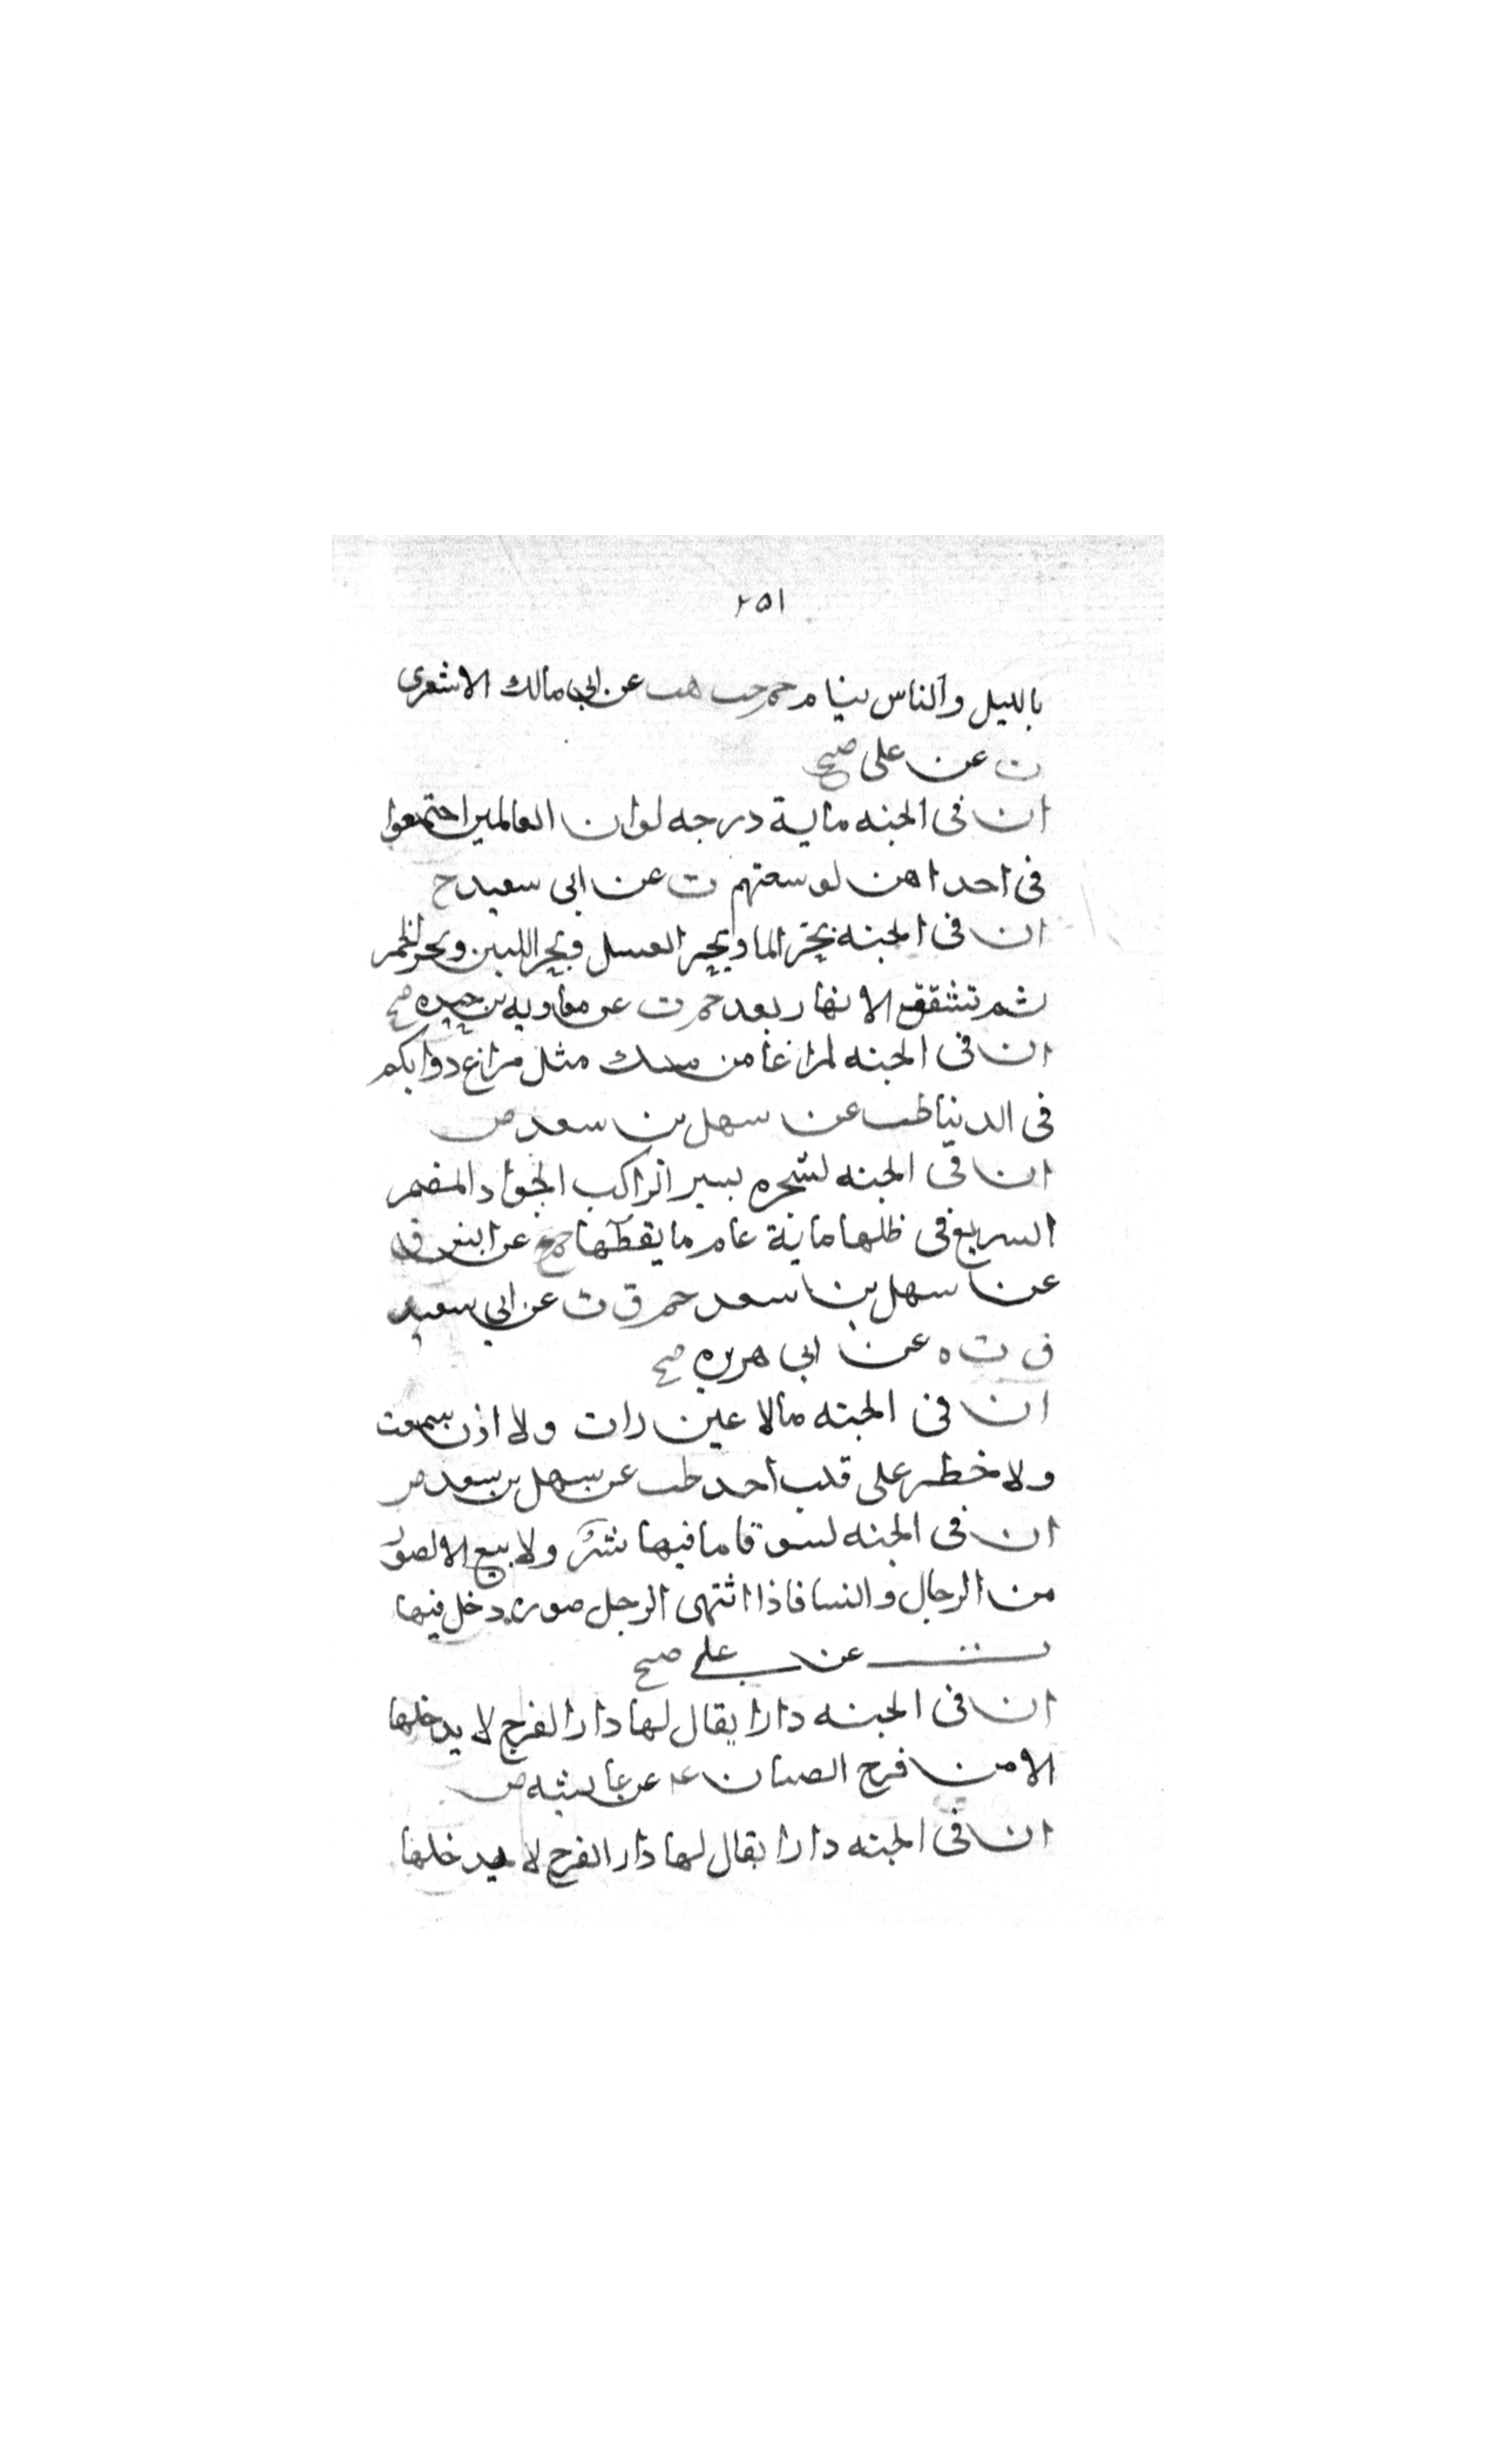 ٢٥١
بالليل والناس نيام حم حب هب عن ابى مالك الاشعرى
ت عن على صح
ان فى الجنه ماية درجه لوان العالمين اجتمعوا
فى احداهن لوسعتهم ت عن ابى سعيد ح
ان فى الجنه بحر الما وبحر العسل وبحر اللبن وبحر الخمر
ثم تشقق الانهار بعد حم ت عن معاويه بن حيده صح
ان فى الجنه لمراغا من مسك مثل مراغ دوابكم
فى الدنيا طب عن سهل بن سعد ض
ان فى الجنه لشجره يسير الراكب الجواد المضمر
السريع فى ظلها ماية عام ما يقطعها حم خ ت عن انس ق
عن سهل بن سعد حم ق ت عن ابى سعيد
ق ت ه عن ابى هريره صح
ان فى الجنه مالا عين رات ولا اذن سمعت
ولا خطر على قلب احد طب عن سهل بن سعد ض
ان فى الجنه لسوقا ما فيها شرى ولا بيع الا الصور
من الرجال والنسا فاذا اشتهى الرجل صورة دخل فيها
ت عن على صح
ان فى الجنه دارا يقال لها دار الفرح لا يدخلها
الا من فرح الصبيان عد عن عايشه ض
ان فى الجنه دارا يقال لها دار الفرح لا يدخلها